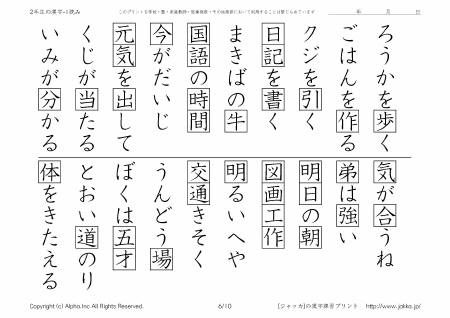 2年生の漢字-1読み
このプリントを学校・塾・家庭教師・医療施設・その他施設において利用することは禁じられています
年 月 日
ろうかを歩く
ごはんを作る
クジを引く
日記を書く
まきばの牛
国語の時間
今がだいじ
元気を出して
くじが当たる
いみが分かる
気が合うね
弟は強い
明日の朝
図画工作
明るいへや
交通きそく
うんどう場
ぼくは五才
とおい道のり
体をきたえる
Copyright (c) Alpha.Inc All Rights Reserved.
6/10
[ジャッカ]の漢字練習プリント http://www.jakka.jp/